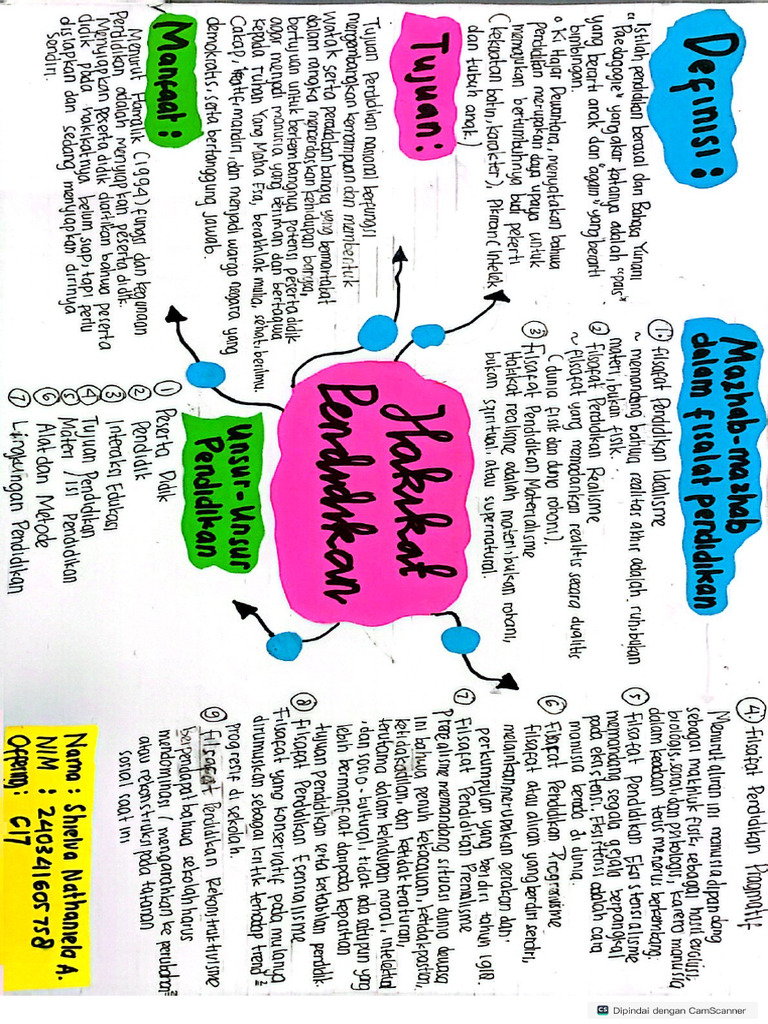 Definisi :
Istilah pendidikan berasal dari Bahasa Yunani
"Paedagogie" yang akar katanya adalah "pais"
yang berarti anak dan "again" yang berarti
bimbingan.
• Ki Hajar Dewantara, menyatakan bahwa
pendidikan merupakan daya upaya untuk
memajukan bertumbuhnya budi pekerti
(kekuatan batin, karakter), Pikiran (Intelek
dan tubuh anak)
Tujuan :
Tujuan Pendidikan nasional berfungsi
mengembangkan kemampuan dan membentuk
watak serta peradaban bangsa yang bermartabat
dalam rangka mencerdaskan kehidupan bangsa,
bertujuan untuk berkembangnya potensi peserta didik
agar menjadi manusia yang beriman dan bertaqwa
kepada Tuhan Yang Maha Esa, berakhlak mulia, sehat, berilmu,
Cakap, kreatif, mandiri, dan menjadi warga negara yang
demokratis, serta bertanggung jawab.
Manfaat :
Menurut Hamalik (1994) fungsi dan kegunaan
Pendidikan adalah menyiapkan peserta didik.
Menyiapkan peserta didik diartikan bahwa peserta
didik pada hakikatnya belum siap, tapi perlu
disiapkan dan sedang menyiapkan dirinya
sendiri.
Mazhab-mazhab
dalam fisalat pendidikan
1. filsafat Pendidikan Idealisme
~ memandang bahwa realitas akhir adalah ruh, bukan
materi, bukan fisik.
2 filsafat Pendidikan Realisme
~ filsafat yang memandankan realitis secara dualitis
(dunia fisik dan dunia rohani).
3 Filsafat Pendidikan Materialisme
Hakikat realisme adalah materi, bukan rohani,
bukan spiritual, atau supernatural.
Hakikat
Pendidikan
Unsur-Unsur
Pendidikan
1 Peserta Didik
2 Pendidik
3 Interaksi Edukasi
4 Tujuan Pendidikan
5 Materi / Isi Pendidikan
6 Alat dan Metode
7 Lingkungan Pendidikan
4. filsafat Pendidikan Pragmatif
Menurut aliran ini manusia dipandang
sebagai makhluk fisik, sebagai hasil evolusi,
biologis, sosial, dan psikologis, karena manusia
dalam keadaan terus menerus berkembang.
5 Filsafat Pendidikan Eksistensialisme
memandang segala gejala berpangkal
pada eksistensi. Eksistensi adalah cara
manusia berada di dunia.
6 Filsafat Pendidikan Progresivisme
melainkan merupakan gerakan dan
filsafat atau aliran yang berdiri sendiri,
perkumpulan yang berdiri tahun 1918.
7 Filsafat Pendidikan Prenialisme
Prenialisme memandang situasi dunia dewasa
ini bahwa penuh kekacauan, ketidakpastian,
ketidakadilan, dan ketidakteraturan,
terutama dalam kehidupan moral, intelektual
, dan sosio-kultural, tidak ada satupun yang
lebih bermanfaat daripada kepastian
tujuan pendidikan serta kestabilan pendidik.
8 filsafat Pendidikan Esensialisme
Filsafat yang konservatif pada mulanya
dirumuskan sebagai kritik terhadap trend²
progresif di sekolah.
9 filsafat Pendidikan Rekonstruktivisme
berpendapat bahwa sekolah harus
mendominasi / mengarahkan ke perubahan²
atau rekonstruksi pada tatanan
sosial saat ini
Nama : Shielva Nathaniela A.
NIM : 240341605758
Offering : C17
CS Dipindai dengan CamScanner